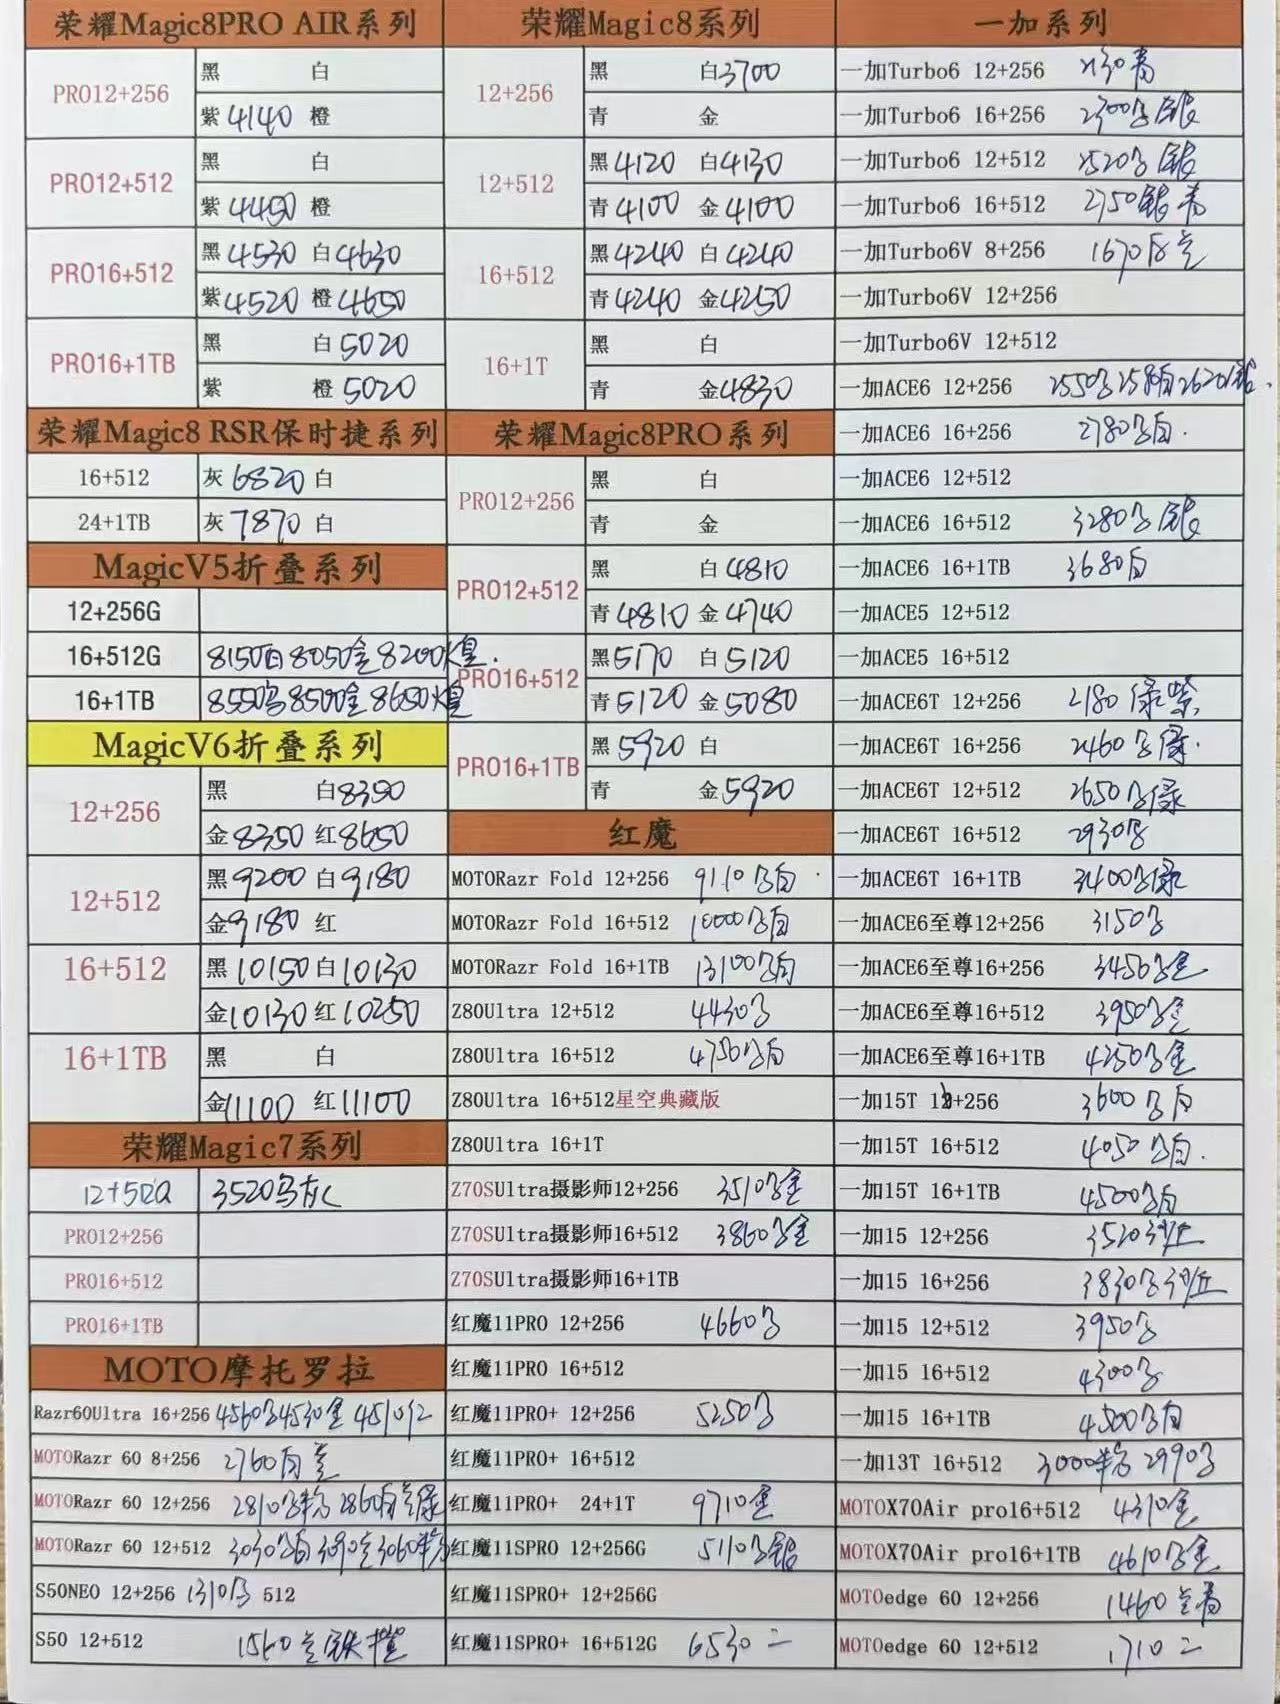 荣耀Magic8PRO AIR系列
PRO12+256
黑 白
紫4140 橙
PRO12+512
黑 白
紫4450 橙
PRO16+512
黑4530 白4630
紫4520 橙4650
PRO16+1TB
黑 白5020
紫 橙5020
荣耀Magic8 RSR保时捷系列
16+512 灰6820 白
24+1TB 灰7870 白
MagicV5折叠系列
12+256G
16+512G 8150白8050金8200
16+1TB 8550 8500金8650
MagicV6折叠系列
12+256
黑 白8350
金8350 红8650
12+512
黑9200 白9180
金9180 红
16+512
黑10150 白10130
金10130 红10250
16+1TB
黑 白
金11100 红11100
荣耀Magic7系列
12+512 3520
PRO12+256
PRO16+512
PRO16+1TB
MOTO摩托罗拉
Razr60Ultra 16+256 4560 4530金 4510红
MOTORazr 60 8+256 2760白兰
MOTORazr 60 12+256 2810 2860白
MOTORazr 60 12+512 3030白 3060
S50NEO 12+256 1310 512
S50 12+512 1560兰
荣耀Magic8系列
12+256
黑 白3700
青 金
12+512
黑4120 白4130
青4100 金4100
16+512
黑4240 白4240
青4240 金4250
16+1T
黑 白
青 金4830
荣耀Magic8PRO系列
PRO12+256
黑 白
青 金
PRO12+512
黑 白4810
青4810 金4740
PRO16+512
黑5170 白5120
青5120 金5080
PRO16+1TB
黑5920 白
青 金5920
红魔
MOTORazr Fold 12+256 9110白
MOTORazr Fold 16+512 10000白
MOTORazr Fold 16+1TB 13100白
Z80Ultra 12+512 4430
Z80Ultra 16+512 4750白
Z80Ultra 16+512星空典藏版
Z80Ultra 16+1T
Z70SUltra摄影师12+256 3510金
Z70SUltra摄影师16+512 3860金
Z70SUltra摄影师16+1TB
红魔11PRO 12+256 4660
红魔11PRO 16+512
红魔11PRO+ 12+256 5250
红魔11PRO+ 16+512
红魔11PRO+ 24+1T 9710金
红魔11SPRO 12+256G 5110银
红魔11SPRO+ 12+256G
红魔11SPRO+ 16+512G 6530
一加系列
一加Turbo6 12+256 2130青
一加Turbo6 16+256 2300银
一加Turbo6 12+512 2520银
一加Turbo6 16+512 2750银青
一加Turbo6V 8+256 1670白兰
一加Turbo6V 12+256
一加Turbo6V 12+512
一加ACE6 12+256 2550 2580白2620银
一加ACE6 16+256 2780白
一加ACE6 12+512
一加ACE6 16+512 3280银
一加ACE6 16+1TB 3680白
一加ACE5 12+512
一加ACE5 16+512
一加ACE6T 12+256 2180绿紫
一加ACE6T 16+256 2460绿
一加ACE6T 12+512 2650绿
一加ACE6T 16+512 2930
一加ACE6T 16+1TB 3400绿
一加ACE6至尊12+256 3150
一加ACE6至尊16+256 3450金
一加ACE6至尊16+512 3950金
一加ACE6至尊16+1TB 4250金
一加15T +256 3600白
一加15T 16+512 4050白
一加15T 16+1TB 4500白
一加15 12+256 3520沙丘
一加15 16+256 3830沙丘
一加15 12+512 3950
一加15 16+512 4300
一加15 16+1TB 4500白
一加13T 16+512 3000 2990
MOTOX70Air pro16+512 4310金
MOTOX70Air pro16+1TB 4610金
MOTOedge 60 12+256 1460兰青
MOTOedge 60 12+512 1710